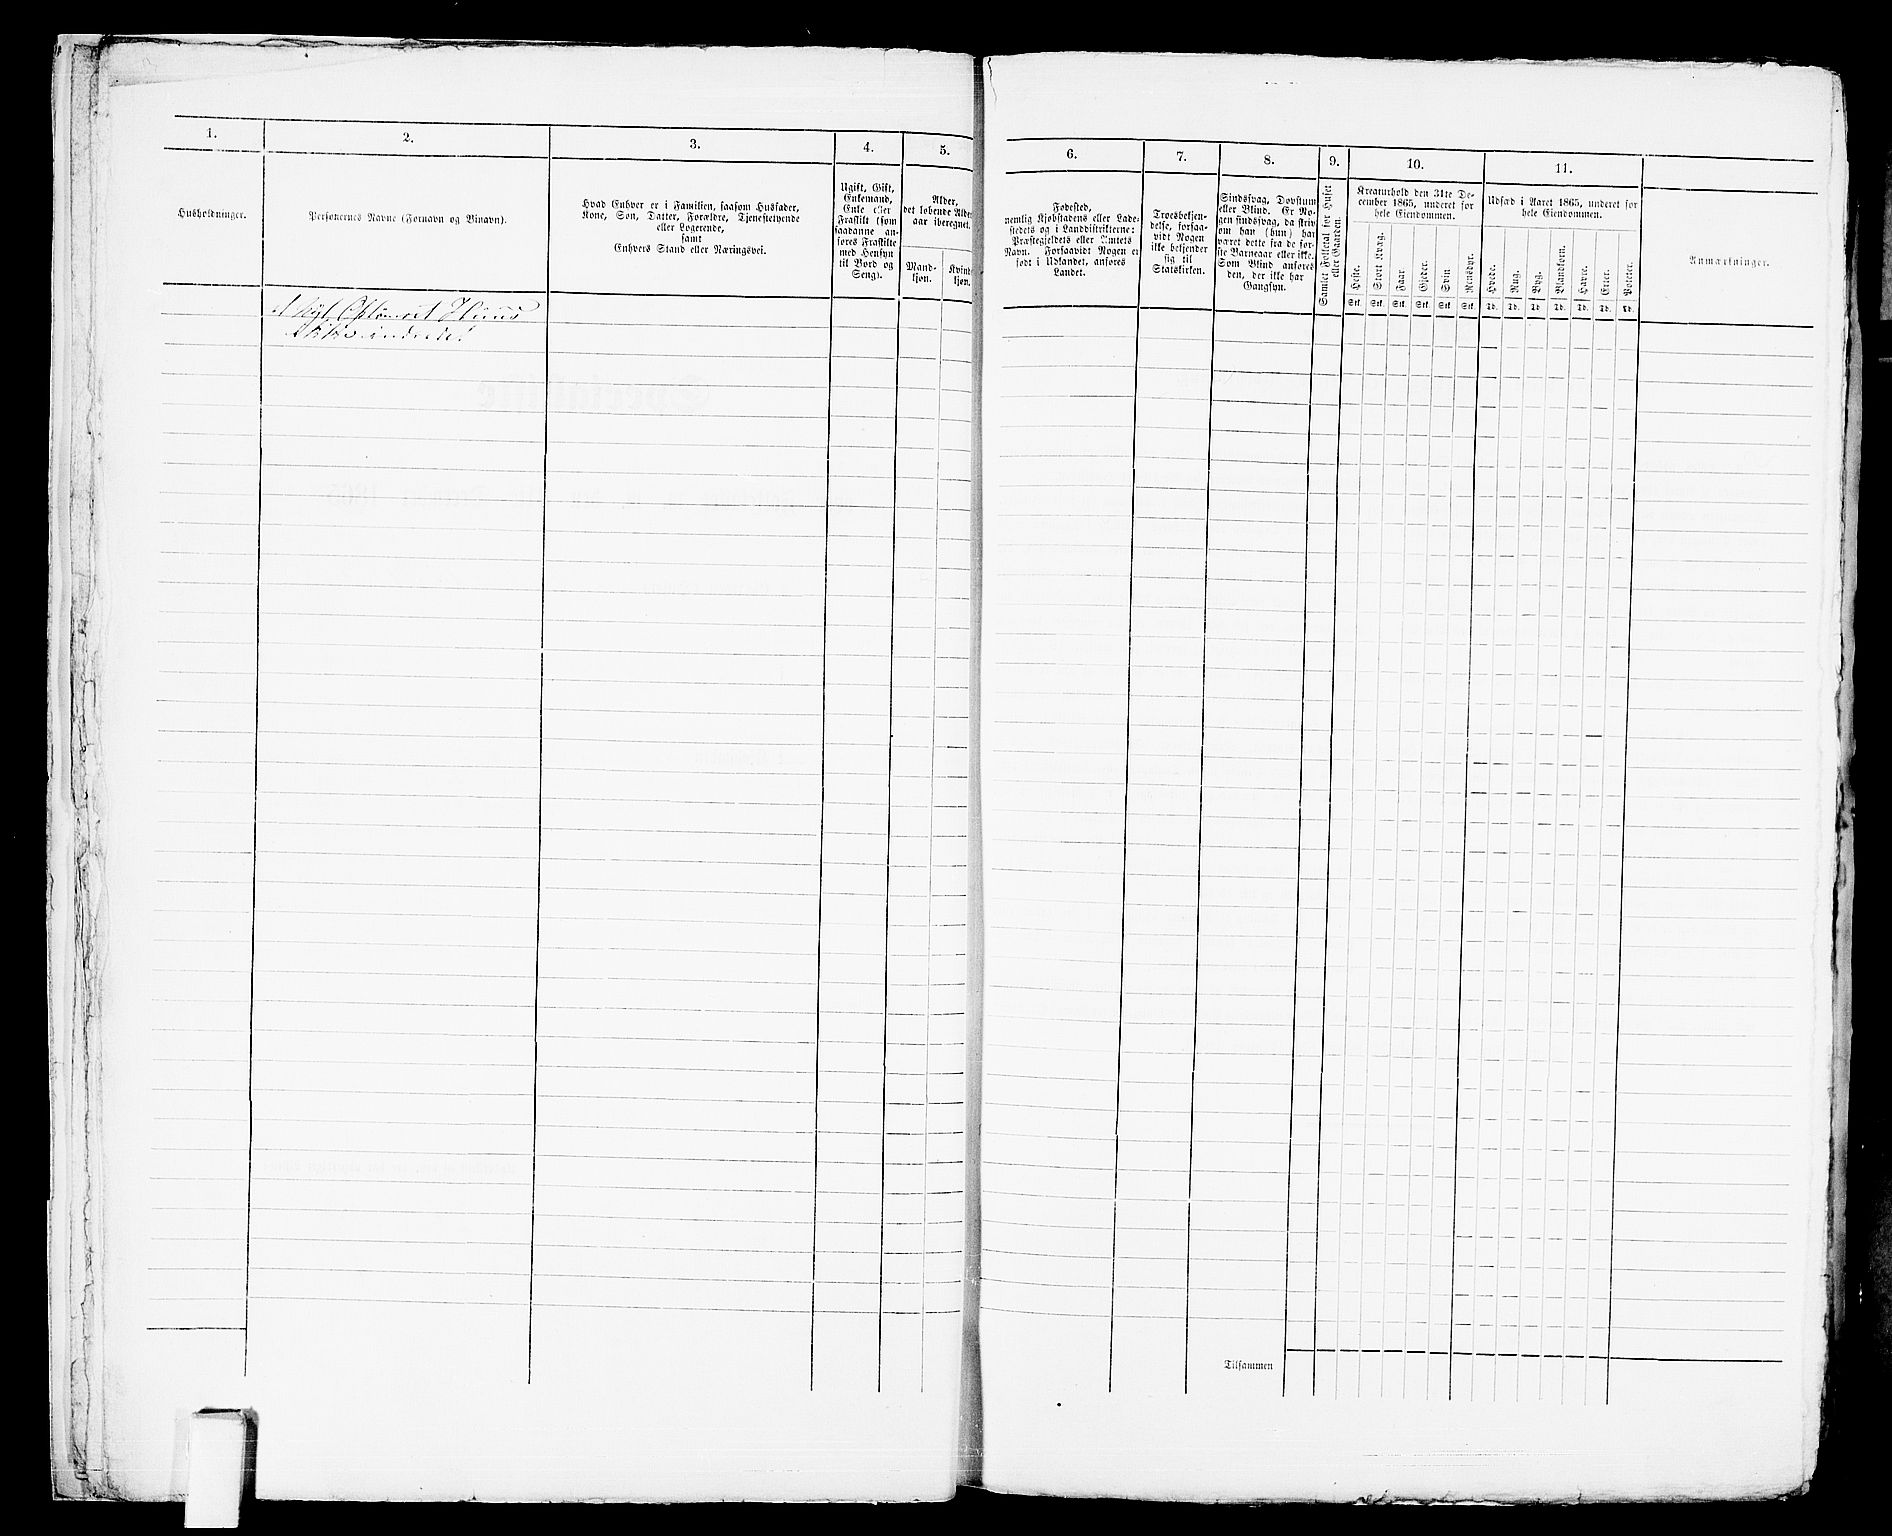 1.
2.
3.
4.
5.
Husholdninger.
Personernes Navne (Fornavn og Tilnavn).
Hvad Enhver er i Familien, saasom Husfader,
Kone, Søn, Datter, Forældre, Tjenestetyende
eller Logerende,
samt
Enhvers Stand eller Næringsvei.
Ugift, Gift,
Enkemand,
Enke eller
Fraskilt (som
saadanne an-
føres Fraskilte
med Hensyn
til Bord og
Seng).
Alder,
det løbende Alders-
aar iberegnet.
Mand-
kjøn.
Kvinde-
kjøn.
Huus
6.
7.
8.
9.
10.
11.
Fødested,
nemlig Kjøbstadens eller Lade-
stedets og i Landdistrikterne:
Præstegjeldets eller Amtets
Navn. Forsaavidt Nogen er
født i Udlandet, anføres
Landet.
Troesbekjen-
delse, forsaa-
vidt Nogen
ikke bekjender
sig til
Statskirken.
Sindssvag, Døvstum
eller Blind. Er No-
gen sindssvag, da skriv
om han (hun) har
været dette fra de før-
ste Barneaar eller ikke.
Som Blind anføres
den, der ikke har
Gangsyn.
Samlet Folketal for Huset
eller Gaarden.
Kreaturhold den 31te De-
cember 1865, underet for
hele Eiendommen.
Heste.
Stort Kvæg.
Faar.
Gjeder.
Svin.
Rensdyr.
Stk. Stk. Stk. Stk. Stk. Stk.
Udsæd i Aaret 1865, underet for
hele Eiendommen.
Hvede.
Rug.
Byg.
Blandkorn.
Havre.
Erter.
Poteter.
Td. Td. Td. Td. Td. Td. Td.
Anmærkninger.
Tilsammen